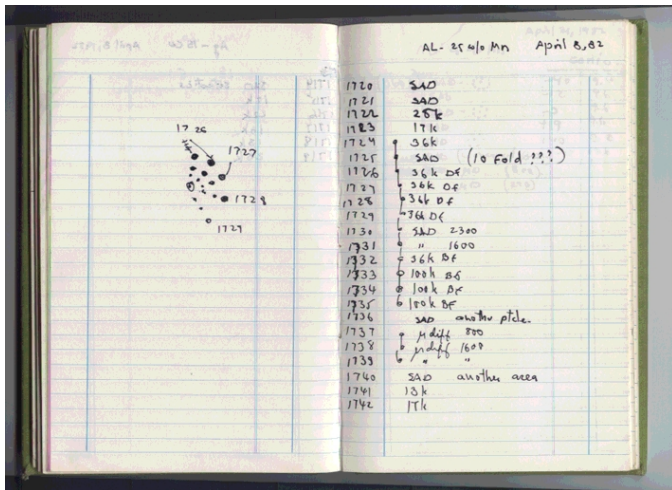 1726
1727
1728
1729
AL-25 w/o Mn April 8, 82
1720 SAD
1721 SAD
1722 25k
1723 17k
1724 36k
1725 SAD (10 Fold ???)
1726 36k DF
1727 36k DF
1728 36k DF
1729 36k DF
1730 SAD 2300
1731 " 1600
1732 36k BF
1733 100k BF
1734 100k BF
1735 BF
1736 SAD another ptcle.
1737 μdiff 800
1738 μdiff 1600
1739 " "
1740 SAD another area
1741 13k
1742 17k